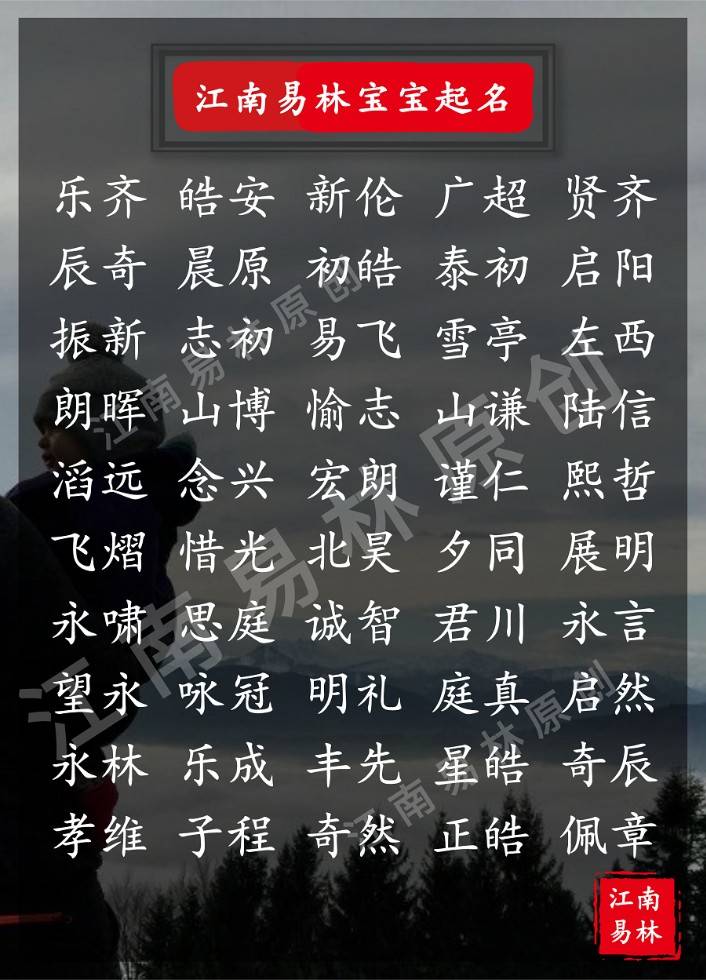 江南易林宝宝起名
乐齐 皓安 新伦 广超 贤齐
辰奇 晨原 初皓 泰初 启阳
振新 志初 易飞 雪亭 左西
朗晖 山博 愉志 山谦 陆信
滔远 念兴 宏朗 谨仁 熙哲
飞熠 惜光 北昊 夕同 展明
永啸 思庭 诚智 君川 永言
望永 咏冠 明礼 庭真 启然
永林 乐成 丰先 星皓 奇辰
孝维 子程 奇然 正皓 佩章
江南易林原创
江南易林原创
江南易林原创
江南
易林